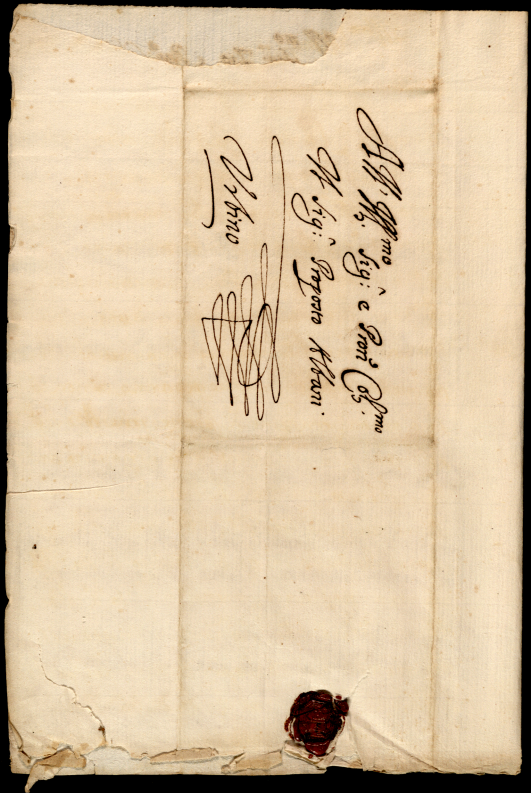 All' Ill.mo Sig.r e Pron. Col.mo
Il Sig.r Proposto Albani
Urbino